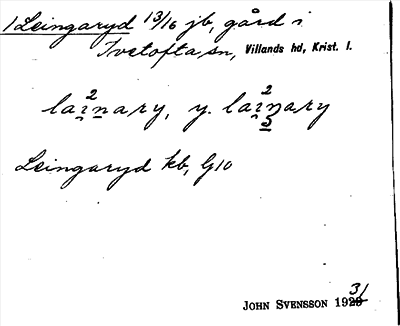 1 Leingaryd 13/16 jb, gård i
Ivetofta sn, Villands hd, Krist. l.
laɪ²nary, y. laɪ²nary
Leingaryd kb, G10
John Svensson 1931